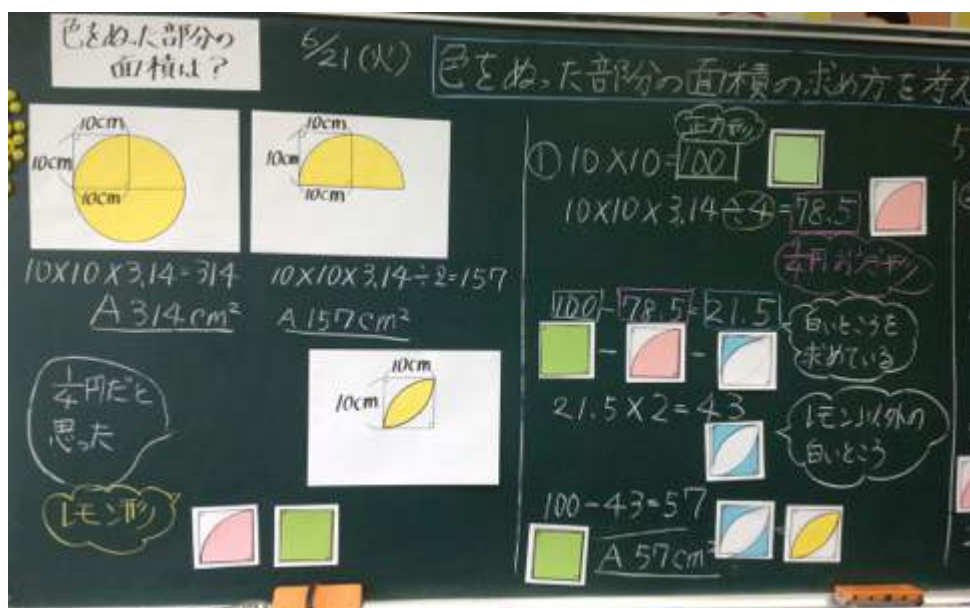 色をぬった部分の
面積は？
6/21(火)
色をぬった部分の面積の求め方を考え
10cm
10cm
10cm
10×10×3.14=314
A 314cm²
10cm
10cm
10cm
10×10×3.14÷2=157
A 157cm²
1/4円だと
思った
レモン形
10cm
10cm
正方形
① 10×10=100
10×10×3.14÷4=78.5
1/4円
100-78.5=21.5
白いところを
求めている
21.5×2=43
レモン以外の
白いところ
100-43=57
A 57cm²